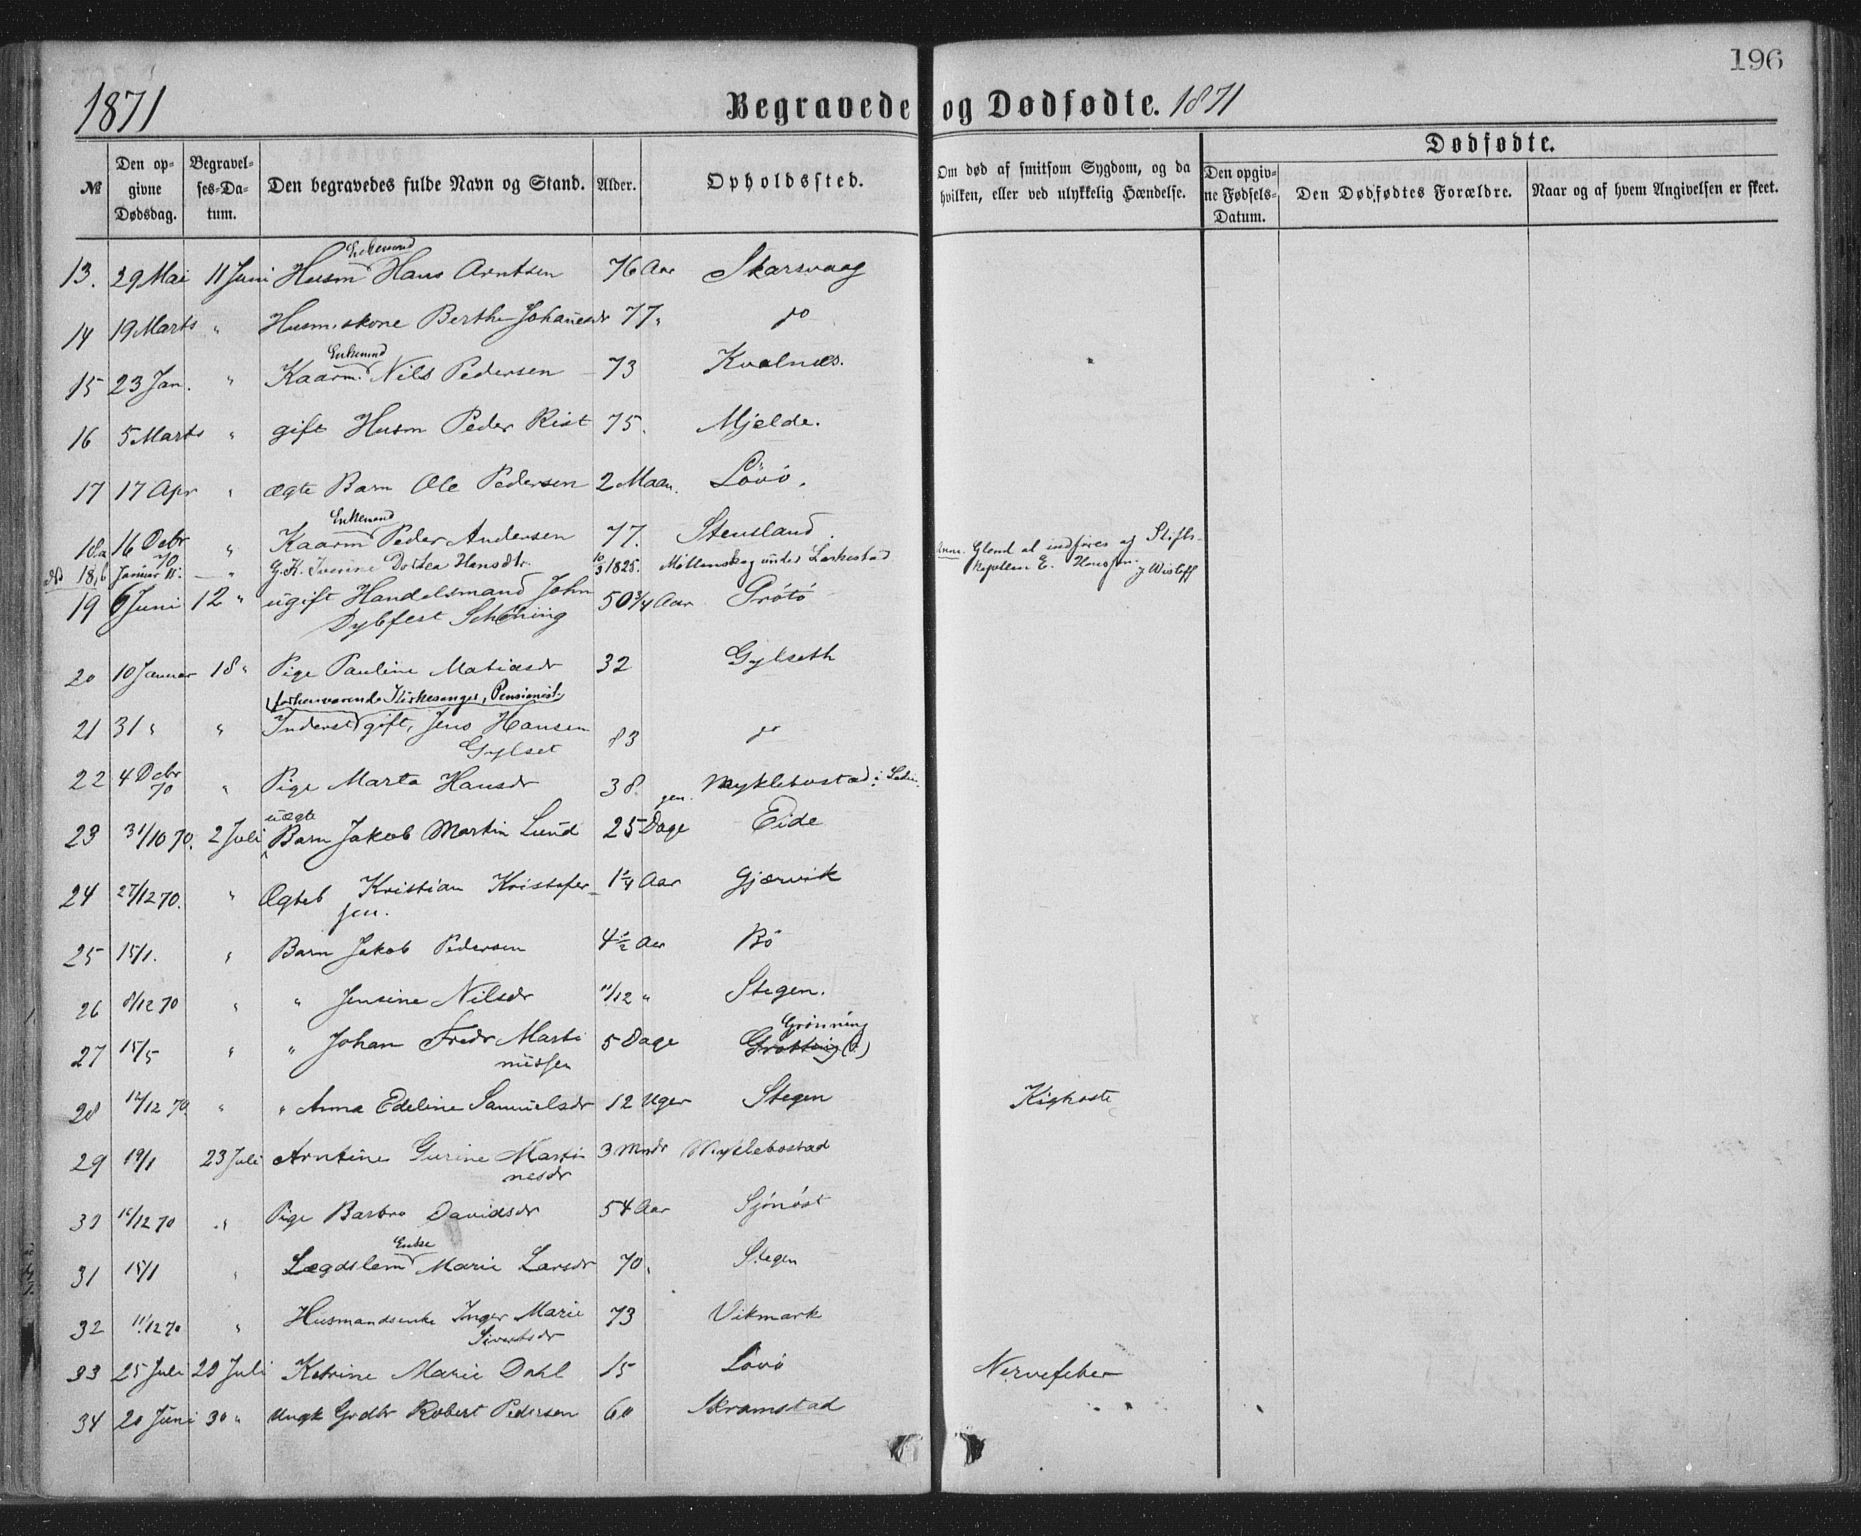 196
1871 Begravede og Dødfødte. 1871
Dødfødte.
№ Den opgivne Dødsdag. Begravelses-Datum. Den begravedes fulde Navn og Stand. Alder. Opholdssted. Om død af smitsom Sygdom, og da hvilken, eller ved ulykkelig Hændelse. Den opgivne Fødsels-Datum. Den Dødfødtes Forældre. Naar og af hvem Angivelsen er skeet.
Enkemand
13. 29 Mai 11 Juni Husm Hans Arntsen 76 Aar Skarsvaag
14 19 Marts " Husm.skone Berthe Johanesdr 77 " do
Enkemand
15 23 Jan. " Kaarm. Nils Pedersen 73 Kvalnæs.
16 5 Marts " gift Husm Peder Rist 75. Mjelde.
17 17 Apr " ægte Barn Ole Pedersen 2 Maan. Lövö.
Enkemand
18a 16 Decbr 70 " Kaarm Peder Andersen 77. Stensland.
18,b Januar 11. — " G.K. Iverine Dortea Hansdtr. 10/3 1825. Möllenskog under Leskestad Anm. Glemt at indföres af Stifts-
Kapellan E. Wisløff
19 6 Juni 12 " ugift Handelsmand John 50 3/4 Aar Grötö
Dybfest Schöning
20 10 Januar 18 " Pige Pauline Matiasdr 32 Gylseth
forhenværende Kirkesanger, Pensionist,
21 31 " " Inderst gift, Jens Hansen 83 do
Gylset
22 4 Decbr 70 " Pige Marta Hansdr 38. Myklebostad i
uægte
23 31/10 70. 2 Juli Barn Jakob Martin Lund 25 Dage Eide
24 27/12 70. " Ægteb Kristian Kristofer- 1 1/4 Aar Gjærvik
sen.
25 15/1. " Barn Jakob Pedersen 4 1/2 Aar Bö
26 8/12 70 " " Jensine Nilsdr 11/12 " Stegen.
Grönning
27 15/5 " " Johan Fredr Marti 5 Dage Gröttnig (?)
niussen
28 12/12 70. " " Anna Edeline Samuelsdr 12 Uger Stegen Kighoste
29 19/1 23 Juli Arntine Gurine Marti 3 Mndr Myklebostad
nesdr
30 16/12 70 " Pige Barbro Davidsdr 54 Aar Sjönöst
Enke
31 15/1 " Lægdslem Marie Larsdr 70. Stegen
32 11/12 70 " Husmandsenke Inger Marie 73 Vikmark
Sivertsdr
33 25 Juli 28 Juli Katrine Marie Dahl 15 Lövö Nervefeber
34 20 Juni 30 " Ungk Grdbr Robert Pedersen 60 Skramstad